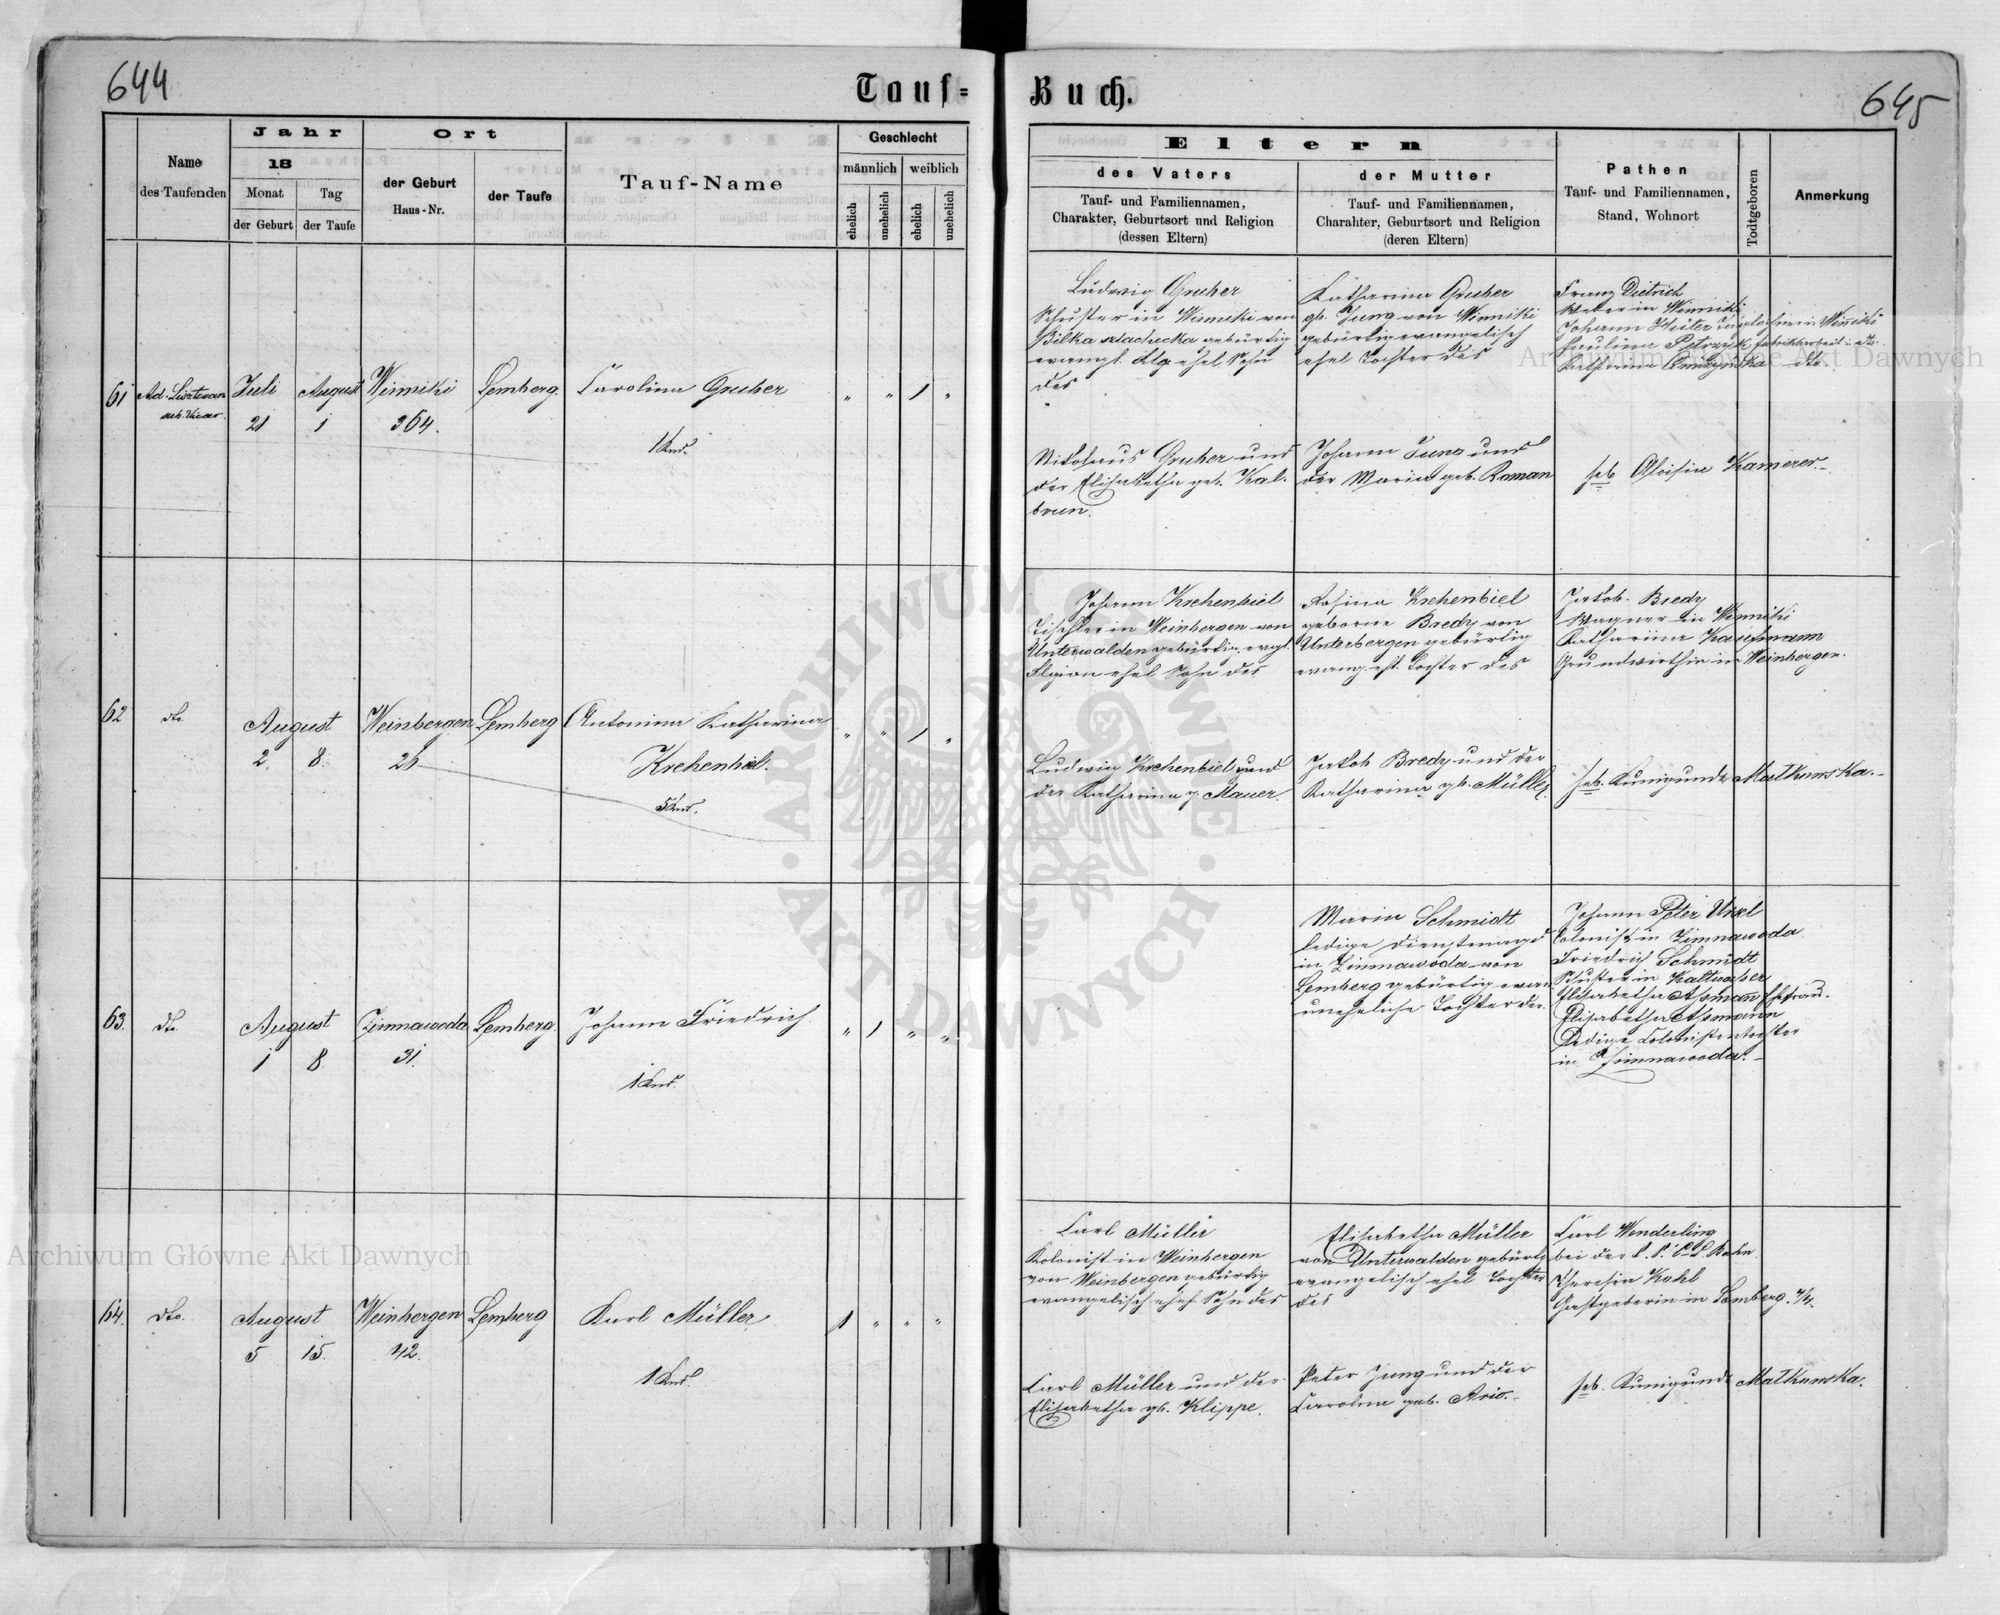 644
Tauf=
Buch.
645
Name
des Taufenden
Jahr
18
Monat
der Geburt
Tag
der Taufe
Ort
der Geburt
Haus-Nr.
der Taufe
Tauf-Name
Geschlecht
männlich
weiblich
ehelich
unehelich
ehelich
unehelich
Eltern
des Vaters
Tauf- und Familiennamen,
Charakter, Geburtsort und Religion
(dessen Eltern)
der Mutter
Tauf- und Familiennamen,
Charahter, Geburtsort und Religion
(deren Eltern)
Pathen
Tauf- und Familiennamen,
Stand, Wohnort
Todtgeboren
Anmerkung
61
Juli
21
August
1
Winniki
364.
Lemberg.
Carolina Gruber
1 Knd.
" " 1 "
Ludwig Gruber
Schuster in Winniki von
Bilka szlachecka gebürtig
ehel Sohn
des
Nikolaus Gruber und
der Elisabetha geb. Kal-
brun.
Katharina Gruber
gb. Jung von Winniki
gebürtig evangelisch
ehel Tochter des
Johann Jung und
der Maria geb. Roman
Franz Dietrich
Weber in Winniki
Johann
Paulina
Katharina dto.
heb Aloisia Kamerer.
62
dto.
August
2
8.
Weinbergen
26
Lemberg
Antonina Katharina
Krehenbiel.
5 Knd.
" " 1 "
Johann Krehenbiel
Tischler in Weinbergen von
Unterwalden gebürtig evgl.
ehel Sohn des
Ludwig Krehenbiel und
der Katharina g. Mauer.
Rosina Krehenbiel
geborne Bredy von
Unterbergen gebürtig
Tochter des
Jakob Bredy und der
Katharina gb. Müller.
Jakob Bredy
Wagner in Winniki
Katharina Kaufmann
Grundwirthin in Weinbergen.
heb. Kunigunde Matkowska.
63.
dto.
August
1
8
Zimnawoda
31.
Lemberg.
Johann Friedrich.
1 Knd.
" 1 " "
Maria Schmidt
ledige Dienstmagd
in Zimnawoda von
Lemberg gebürtig evan
uneheliche Tochter der
Johann Peter
Colonist in Zimnawoda
Friedrich Schmidt
Schuster in Kaltwasser
Elisabetha Assman Ehefrau.
Elisabetha Assmann
Ledige Colonistentochter
in Zimnawoda.
64.
dto.
August
5
15.
Weinbergen
42.
Lemberg
Karl Müller
1 Knd.
1 " " "
Carl Müller
Kolonist in Weinbergen
von Weinbergen gebürtig
evangelisch ehel Sohn des
Carl Müller und der
Elisabetha gb. Klippe.
Elisabetha Müller
von Unterwalden gebürtig
evangelisch ehel Tochter
des
Peter Jung und der
Carolina geb. Ario.
Carl Wenderling
bei der Bahn
Theresia Kohl
Gastgeberin in Lemberg.
heb. Kunigunde Matkowska.
Archiwum Główne Akt Dawnych
Archiwum Główne Akt Dawnych
ARCHIWUM GŁÓWNE · AKT DAWNYCH ·